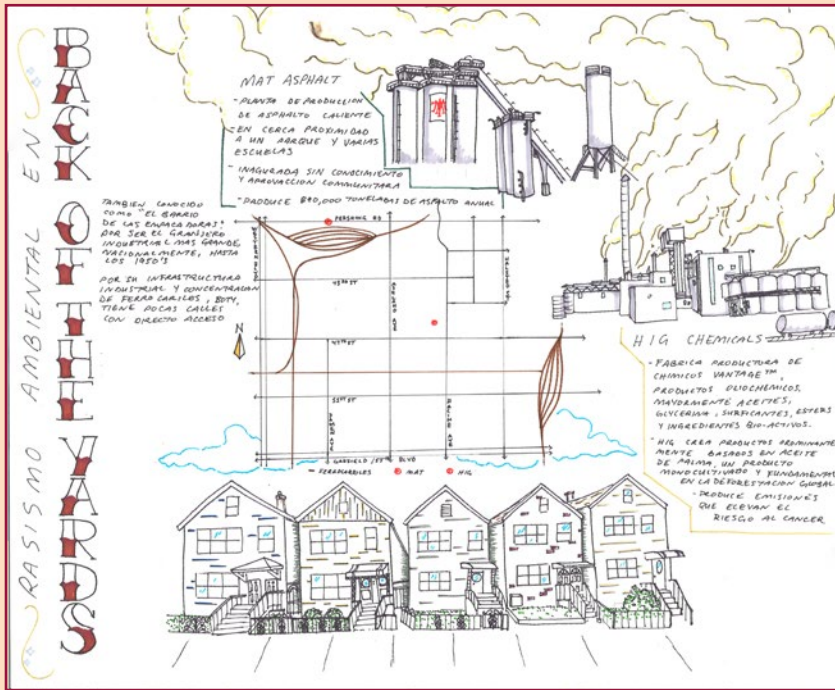 RASISMO AMBIENTAL EN
BACK OF THE YARDS
MAT ASPHALT
- PLANTA DE PRODUCCION
DE ASPHALTO CALIENTE
- EN CERCA PROXIMIDAD
A UN PARQUE Y VARIAS
ESCUELAS
- INAGURADA SIN CONOCIMIENTO
Y APROVACCION COMMUNITARA
- PRODUCE 890,000 TONELADAS DE ASFALTO ANUAL
TAMBIEN CONOCIDO
COMO "EL BARRIO
DE LAS EMPACADORAS"
POR SER EL GRANJERO
INDUSTRIAL MAS GRANDE
NACIONALMENTE, HASTA
LOS 1950'S
POR SU INFRASTRUCTURA
INDUSTRIAL Y CONCENTRACAN
DE FERRO CARILES, BOTY,
TIENE POCAS CALLES
CON DIRECTO ACCESO
N
PERSHING RD
43RD ST
47TH ST
51ST ST
DAMEN AVE
ASHLAND AVE
RACINE AVE
GARFIELD /55TH BLVD
- FERROCARRILES
MAT
HIG
HIG CHEMICALS
- FABRICA PRODUCTORA DE
CHIMICOS VANTAGE™,
PRODUCTOS OLIOCHEMICOS,
MAYORMENTE ACEITES,
GLYCERINA, SURFICANTES, ESTERS
Y INGREDIENTES BIO-ACTIVOS.
- HIG CREA PRODUCTOS PROMINANTE
MENTE BASADOS EN ACEITE
DE PALMA, UN PRODUCTO
MONOCULTIVADO Y FUNDAMENTO
EN LA DEFORESTACION GLOBAL
- PRODUCE EMISIONES
QUE ELEVAN EL
RIESGO AL CANCER